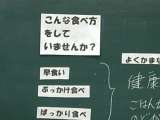 こんな食べ方
をして
いませんか？
早食い
ぶっかけ食べ
ばっかり食べ
よくかまな
健康
ごはんが